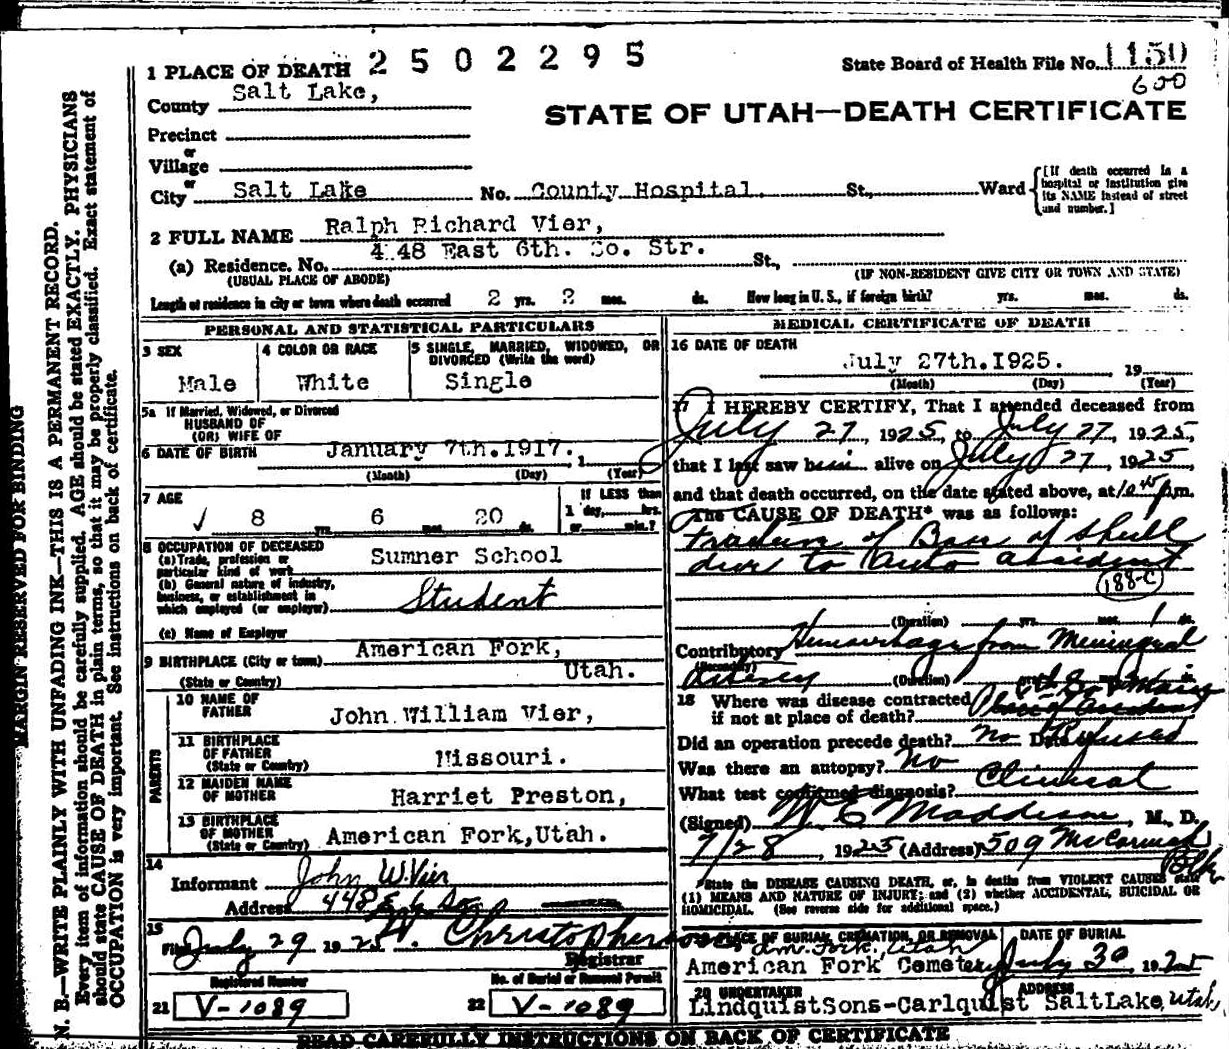 2502295
State Board of Health File No. 1150
600
1 PLACE OF DEATH
County Salt Lake,
STATE OF UTAH—DEATH CERTIFICATE
Precinct
or
Village
or
City Salt Lake No. County Hospital. St., Ward
[If death occurred in a hospital or institution give its NAME instead of street and number.]
2 FULL NAME Ralph Richard Vier,
(a) Residence. No. 448 East 6th. So. Str. St.,
(USUAL PLACE OF ABODE) (IF NON-RESIDENT GIVE CITY OR TOWN AND STATE)
Length of residence in city or town where death occurred 2 yrs. 2 mos. ds. How long in U. S., if foreign birth? yrs. mos. ds.
PERSONAL AND STATISTICAL PARTICULARS
3 SEX
Male
4 COLOR OR RACE
White
5 SINGLE, MARRIED, WIDOWED, OR
DIVORCED (Write the word)
Single
5a If Married, Widowed, or Divorced
HUSBAND OF
(OR) WIFE OF
6 DATE OF BIRTH January 7th.1917. 1
(Month) (Day) (Year)
7 AGE
8 yrs. 6 mos. 20 ds.
If LESS than
1 day, hrs.
or min.?
8 OCCUPATION OF DECEASED
(a) Trade, profession or
particular kind of work Sumner School
(b) General nature of industry,
business, or establishment in
which employed (or employer) Student
(c) Name of Employer
9 BIRTHPLACE (City or town) American Fork,
(State or Country) Utah.
PARENTS
10 NAME OF
FATHER John William Vier,
11 BIRTHPLACE
OF FATHER
(State or Country) Missouri.
12 MAIDEN NAME
OF MOTHER Harriet Preston,
13 BIRTHPLACE
OF MOTHER
(State or Country) American Fork,Utah.
14
Informant John W. Vier
Address 448 E 6 So
15
Filed July 29 1925 W. Christopherson
Registrar
Registered Number
21 V-1089
No. of Burial or Removal Permit
22 V-1089
MEDICAL CERTIFICATE OF DEATH
16 DATE OF DEATH
July 27th.1925. 19
(Month) (Day) (Year)
17 I HEREBY CERTIFY, That I attended deceased from
July 27, 1925, to July 27, 1925,
that I last saw him alive on July 27, 1925,
and that death occurred, on the date stated above, at 10 45 p.m.
The CAUSE OF DEATH* was as follows:
Fracture of Base of Skull
due to Auto accident
188-c
(Duration) yrs. mos. 1 ds.
Contributory Hemorrhage from Meningeal
(Secondary) Artery (Duration)
18 Where was disease contracted
if not at place of death? Place of Accident
Did an operation precede death? No Date Refused
Was there an autopsy? No
What test confirmed diagnosis? Clinical
(Signed) W. E. Maddison, M. D.
7/28, 1925 (Address) 509 McCornick
Blk.
*State the DISEASE CAUSING DEATH, or, in deaths from VIOLENT CAUSES state
(1) MEANS AND NATURE OF INJURY; and (2) whether ACCIDENTAL, SUICIDAL OR
HOMICIDAL. (See reverse side for additional space.)
19 PLACE OF BURIAL, CREMATION, OR REMOVAL
Am. Fork, Utah
American Fork Cemetery
DATE OF BURIAL
July 30, 1925
20 UNDERTAKER
LindquistSons-Carlquist
ADDRESS
SaltLake, Utah,
READ CAREFULLY INSTRUCTIONS ON BACK OF CERTIFICATE
MARGIN RESERVED FOR BINDING
N. B.—WRITE PLAINLY WITH UNFADING INK—THIS IS A PERMANENT RECORD.
Every item of information should be carefully supplied. AGE should be stated EXACTLY. PHYSICIANS
should state CAUSE OF DEATH in plain terms, so that it may be properly classified. Exact statement of
OCCUPATION is very important. See instructions on back of certificate.